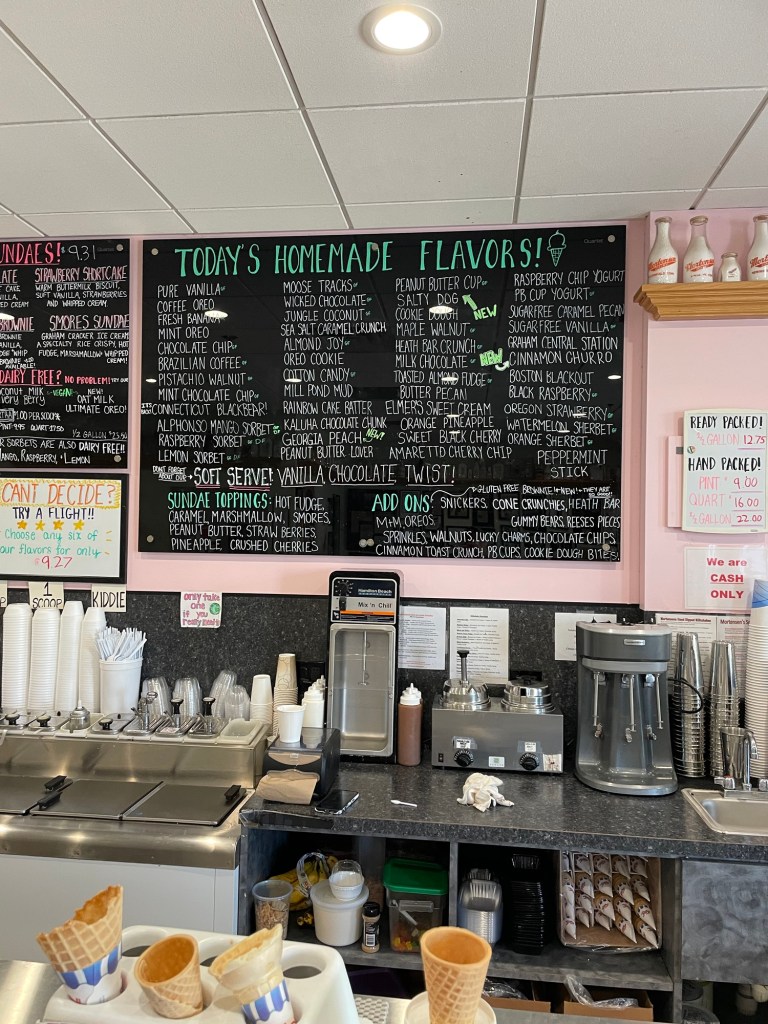 UNDAES! $9.31
STRAWBERRY SHORTCAKE
WARM BUTTERMILK BISCUIT,
SOFT VANILLA, STRAWBERRIES
AND WHIPPED CREAM
SMORES SUNDAE
GRAHAM CRACKER ICE CREAM
A SPECIALTY RICE CRISPY, HOT
FUDGE, MARSHMALLOW WHIPPED
CREAM!
DAIRY FREE? NO PROBLEM!
VEGAN
NEW
OAT MILK
ULTIMATE OREO!
1/2 GALLON $25.50
R SORBETS ARE ALSO DAIRY FREE!!
MANGO, RASPBERRY, + LEMON
CANT DECIDE?
TRY A FLIGHT!!
Choose any six of
our flavors for only
$9.27
1 SCOOP
KIDDIE
Only take
one if
you
really need it!
TODAY'S HOMEMADE FLAVORS!
PURE VANILLA
COFFEE OREO
FRESH BANANA
MINT OREO
CHOCOLATE CHIP
BRAZILIAN COFFEE
PISTACHIO WALNUT
MINT CHOCOLATE CHIP
ITS BACK! CONNECTICUT BLACKBEAR!
ALPHONSO MANGO SORBET DF
RASPBERRY SORBET DF
LEMON SORBET DF
MOOSE TRACKS
WICKED CHOCOLATE
JUNGLE COCONUT
SEA SALT CARAMEL CRUNCH
ALMOND JOY
OREO COOKIE
COTTON CANDY
MILL POND MUD
RAINBOW CAKE BATTER
KALUHA CHOCOLATE CHUNK
GEORGIA PEACH NEW!
PEANUT BUTTER LOVER
PEANUT BUTTER CUP
SALTY DOG NEW
COOKIE DOUGH
MAPLE WALNUT
HEATH BAR CRUNCH
MILK CHOCOLATE
TOASTED ALMOND FUDGE
BUTTER PECAN
ELMERS SWEET CREAM
ORANGE PINEAPPLE
SWEET BLACK CHERRY
AMARETTO CHERRY CHIP
RASPBERRY CHIP YOGURT
PB CUP YOGURT
SUGARFREE CARAMEL PECAN
SUGARFREE VANILLA
GRAHAM CENTRAL STATION
NEW CINNAMON CHURRO
BOSTON BLACKOUT
BLACK RASPBERRY
OREGON STRAWBERRY
WATERMELON SHERBET
ORANGE SHERBET
PEPPERMINT
STICK
DON'T FORGET
ABOUT OUR SOFT SERVE! VANILLA CHOCOLATE TWIST!
SUNDAE TOPPINGS: HOT FUDGE,
CARAMEL, MARSHMALLOW, SMORES,
PEANUT BUTTER, STRAWBERRIES,
PINEAPPLE, CRUSHED CHERRIES
ADD ONS: GLUTEN FREE BROWNIE! NEW! THEY ARE SO GOOD!!
SNICKERS, CONE CRUNCHIES, HEATH BAR
M+M, OREOS, GUMMY BEARS, REESES PIECES
SPRINKLES, WALNUTS, LUCKY CHARMS, CHOCOLATE CHIPS,
CINNAMON TOAST CRUNCH, PB CUPS, COOKIE DOUGH BITES!
READY PACKED!
1/2 GALLON 12.75
HAND PACKED!
PINT $9.00
QUART $16.00
1/2 GALLON 22.00
We are
CASH
ONLY
Hamilton Beach
Mix 'n Chill